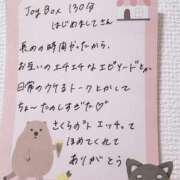 Joy Box 130分
はじめましてさん
長めの時間だったから、
お互いのエチエチなエピソードだとか
日常のウケるトーク上がしてて
ちょ〜たのしすぎた♡
さくらのおト エッチ。って
ほめてくれて
ありがとう